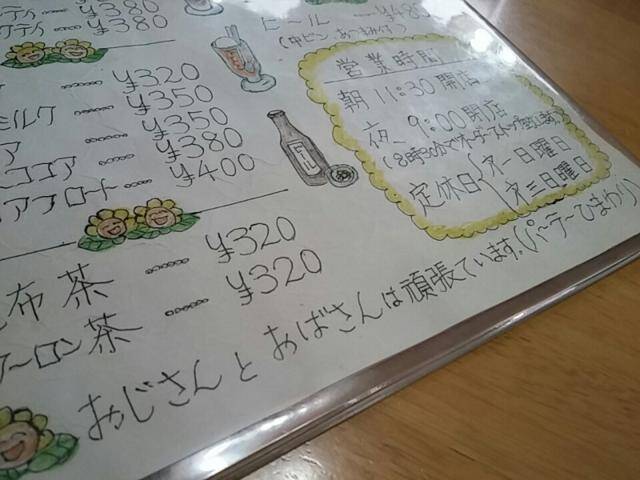 ¥380
クティ ¥380
¥320
ミルク ¥350
ア ¥350
ココア ¥380
アフロート ¥400
布茶 ¥320
ーロン茶 ¥320
おじさんとおばさんは頑張ています。(パーラーひまわり
ビール ¥485
(中ビン、おつまみ付)
営業時間
朝 11:30 開店
夜 9:00 閉店
(8時30分でオーダーストップ致します)
定休日
才一日曜日
才三日曜日